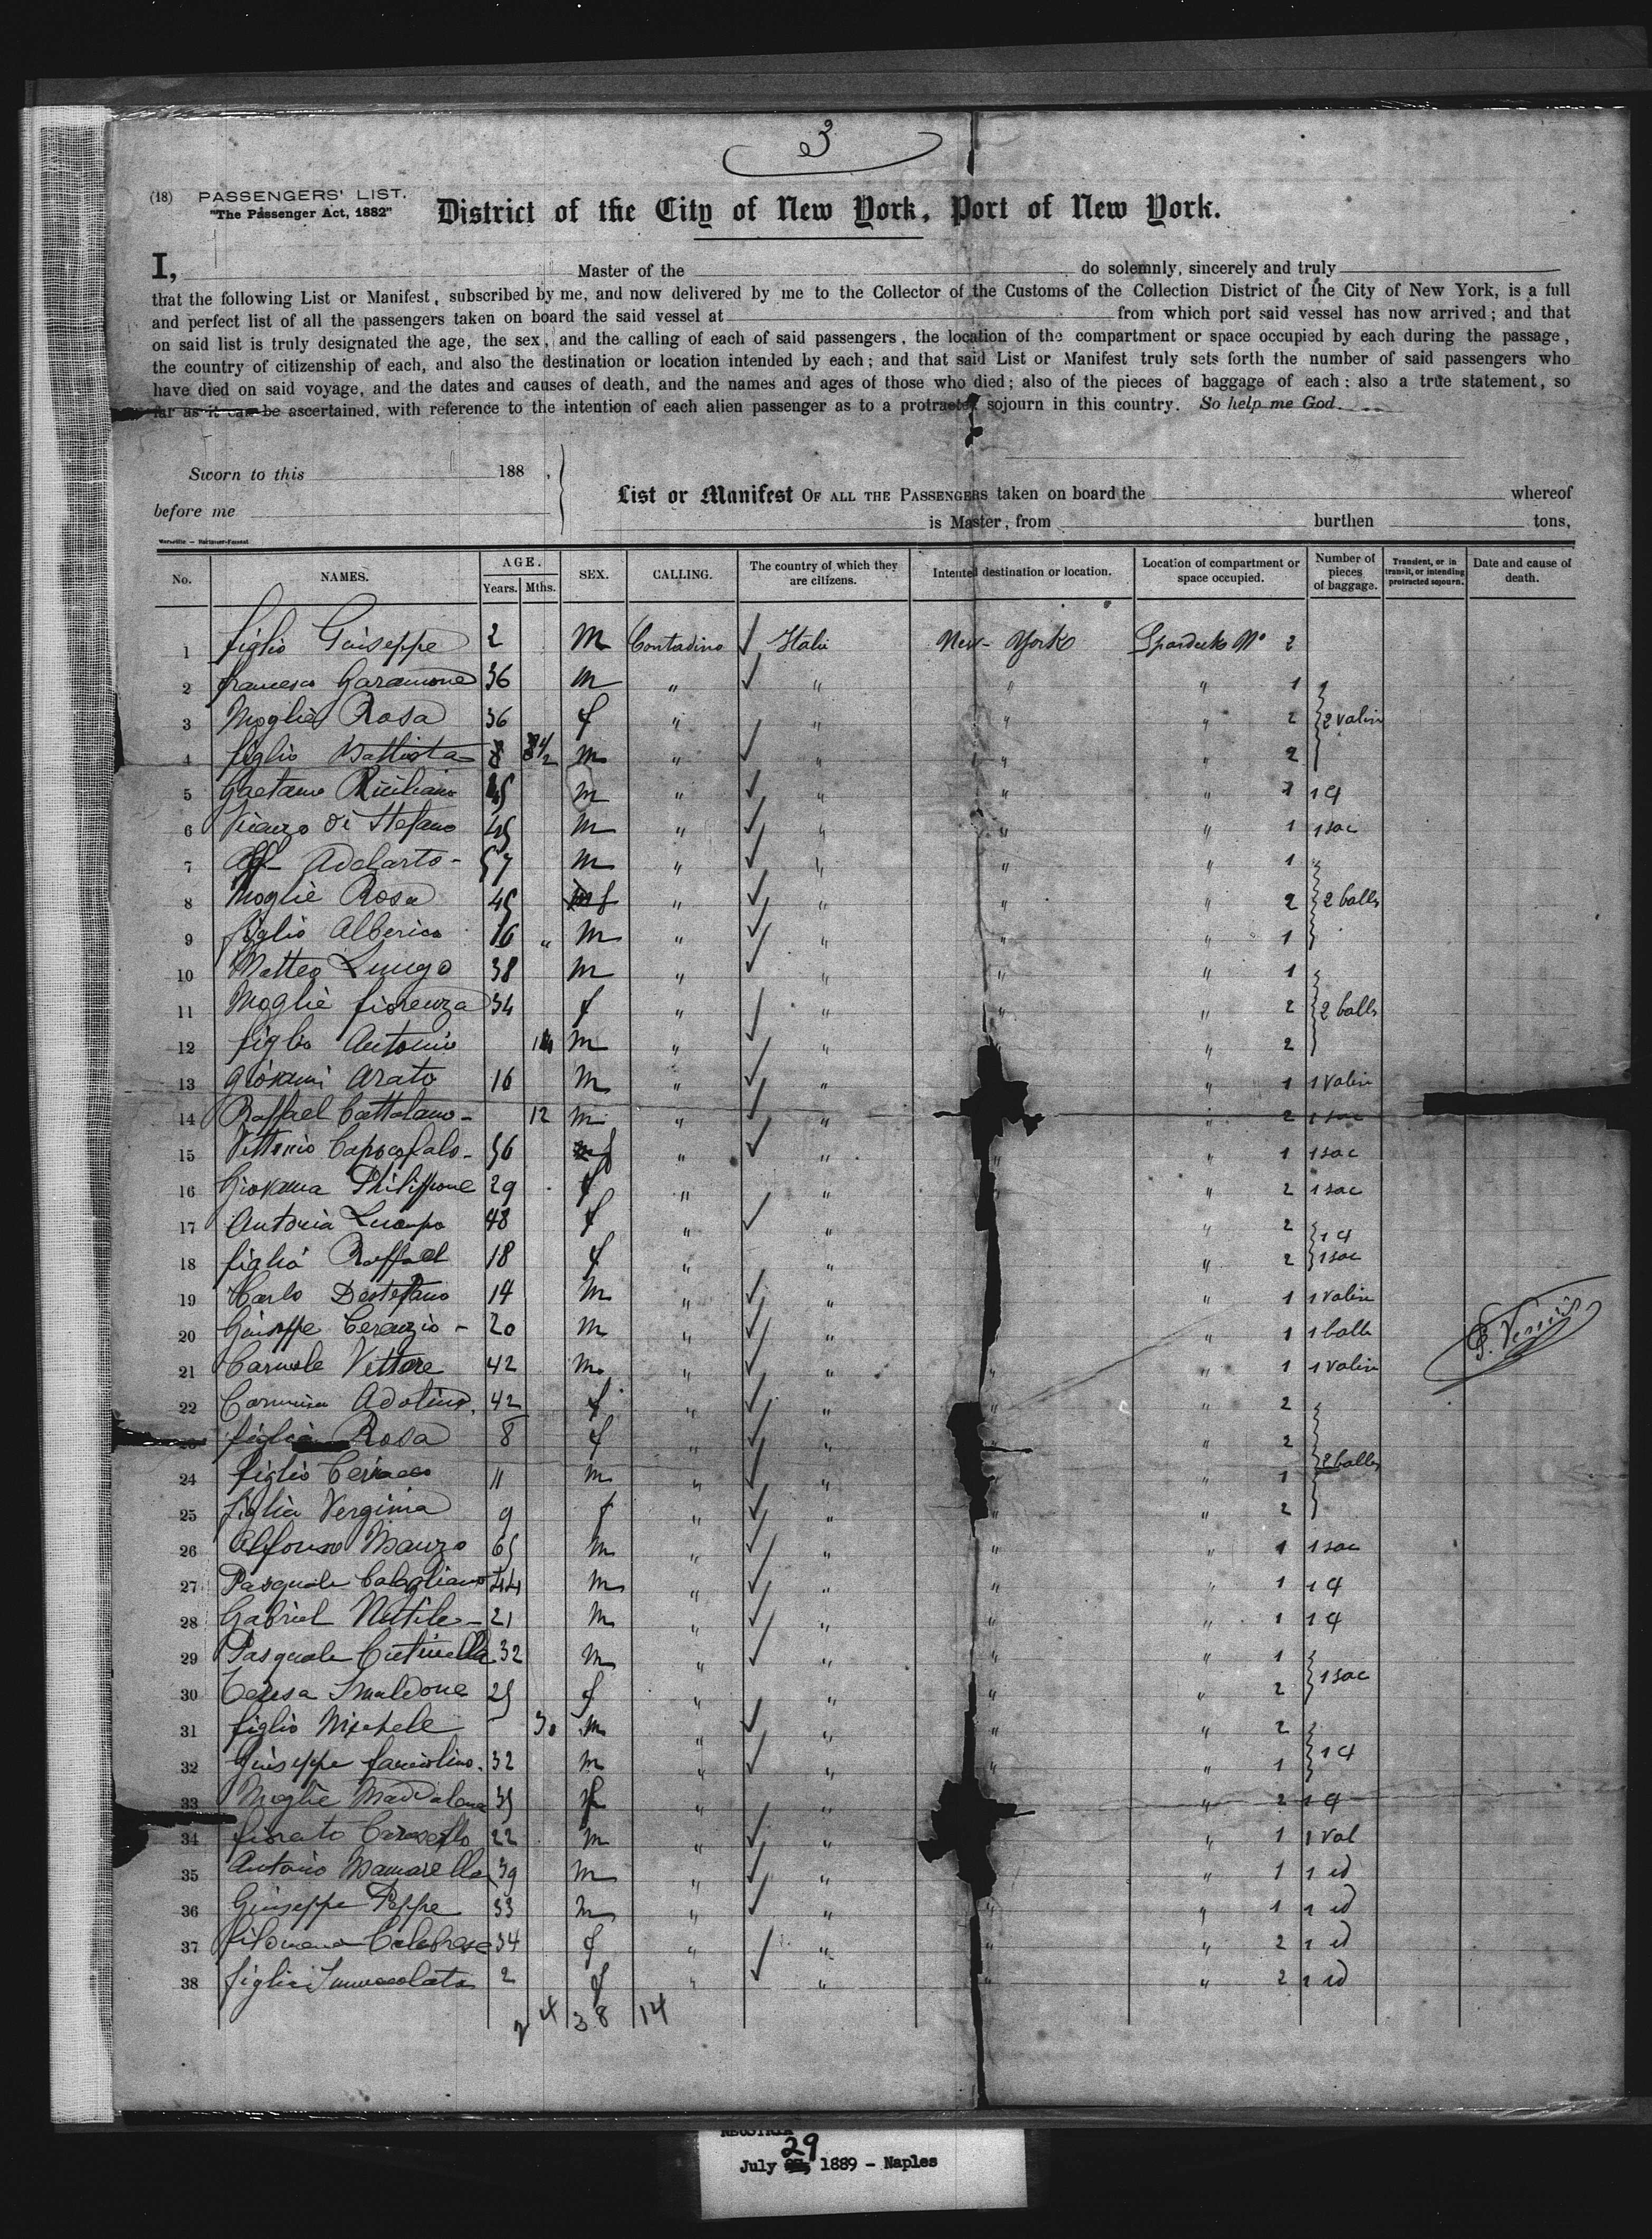 3
(18) PASSENGERS' LIST.
"The Passenger Act, 1882"
District of the City of New York, Port of New York.
I, Master of the do solemnly, sincerely and truly
that the following List or Manifest, subscribed by me, and now delivered by me to the Collector of the Customs of the Collection District of the City of New York, is a full
and perfect list of all the passengers taken on board the said vessel at from which port said vessel has now arrived; and that
on said list is truly designated the age, the sex, and the calling of each of said passengers, the location of the compartment or space occupied by each during the passage,
the country of citizenship of each, and also the destination or location intended by each; and that said List or Manifest truly sets forth the number of said passengers who
have died on said voyage, and the dates and causes of death, and the names and ages of those who died; also of the pieces of baggage of each: also a true statement, so
far as it can be ascertained, with reference to the intention of each alien passenger as to a protracted sojourn in this country. So help me God.
Sworn to this 188 .
before me
List or Manifest OF ALL THE PASSENGERS taken on board the whereof
is Master, from burthen tons,
No. NAMES. AGE. Years. Mths. SEX. CALLING. The country of which they are citizens. Intented destination or location. Location of compartment or space occupied. Number of pieces of baggage. Transient, or in transit, or intending protracted sojourn. Date and cause of death.
1 figlio Giuseppe 2 M Contadino Italie New-York N° 2
2 francesco Garamone 36 m " " " " 1
3 Moglie Rosa 36 f " " " " 2 2 valise
4 figlio Battista m " " " " 2
5 Gaetano m " " " " 1 4
6 di Stefano 45 m " " " " 1 1 sac
7 Adelarto 57 m " " " " 1
8 Moglie Rosa 45 f " " " " 2 2 balles
9 figlio Alberico 16 " m " " " " 1
10 Matteo Luugo 38 m " " " " 1
11 Moglie fiorenza 34 f " " " " 2 2 balles
12 figlio Antonio m " " " " 2
13 Giovanni Arato 16 m " " " 1 1 valise
14 Raffael Cattalano 12 m " " " 2 1 sac
15 Vittorio Capocefalo 56 f " " " " 1 1 sac
16 Giovanna Philippone 29 f " " " 2 1 sac
17 Antonia 48 f " " " 2 1 4
18 figlia Raffael 18 f " " " 2 1 sac
19 Carlo Destefano 14 m " " " 1 1 valise
20 Giuseppe Cerenzio 20 m " " " 1 1 balle
21 Carmele Vittore 42 m " " " " 1 1 valise
22 Adolino 42 f " " " 2
23 figlia Rosa 8 f " " " 2
24 figlio 11 m " " " 1 2 balles
25 figlia Verginia 9 f " " " " 2
26 Alfonso Mauzo 65 m " " " " 1 1 sac
27 Pasquale 44 m " " " " 1 1 4
28 Gabriel Nutile 21 m " " " " 1 1 4
29 Pasquale Cutinella 32 m " " " " 1
30 Teresa Smaldone 25 f " " " " 2 1 sac
31 figlio Michele 30 m " " " " 2
32 Giuseppe 32 m " " " " 1 1 4
33 Moglie Maddalena 35 f " " " 2 1 4
34 22 m " " " 1 1 val
35 Antonio Mamarella 39 m " " " 1 1 id
36 Giuseppe Peppe 33 m " " " " 1 1 id
37 filomena Calabrese 34 f " " " " 2 1 id
38 figlia Immacolata 2 f " " " " 2 1 id
2 4 38 14
July 29, 1889 - Naples